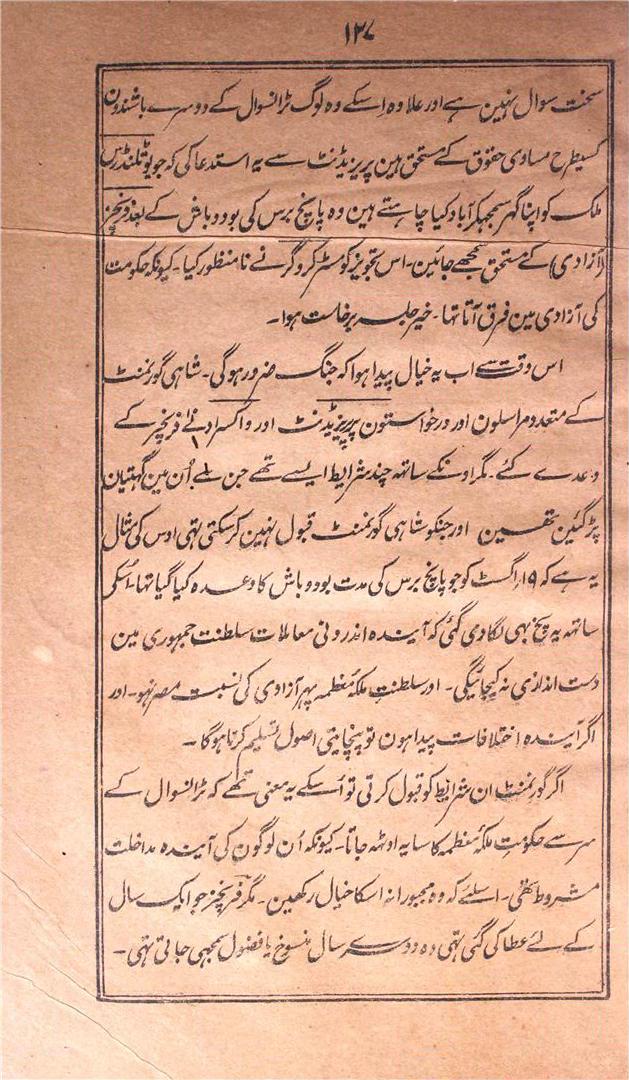 ۱۳۷
سخت سوال نہین ہے اور علاوہ اسکے وہ لوگ ٹرانسوال کے دوسرے باشندون
کسیطرح مساوی حقوق کے مستحق ہین پریزیڈنٹ سے یہ استدعا کی کہ جو یوٹلنڈرس
ملک کو اپنا گھر سمجہکر آباد کیا چاہتے ہین وہ پانچ برس کی بود و باش کے بعد فرنچیز
(آزادی) کے مستحق سمجھے جائین۔ اس تجویز کو مسٹر کروگر نے نا منظور کیا۔ کیونکہ حکومت
کی آزادی مین فرق آتا تہا۔ خیر جلسہ برخاست ہوا۔
اس وقت سے اب یہ خیال پیدا ہوا کہ جنگ ضرور ہوگی۔ شاہی گورنمنٹ
کے متعدد مراسلون اور درخواستون پر پریزیڈنٹ اور واکسراد نے فرنچیز کے
وعدے کئے۔ مگر اونکے ساتھ چند شرایط ایسے تھے جن سے اُن مین گہتیان
پڑ گئین تھین اور جنکو شاہی گورنمنٹ قبول نہین کرسکتی تہی اوس کی مثال
یہ ہے کہ ۱۹ اگسٹ کو جو پانچ برس کی مدت بود و باش کا وعدہ کیا گیا تہا۔ اُسکی
ساتھ یہ پچ بہی لگا دی گئی کہ آیندہ اندرونی معاملات سلطنت جمہوری مین
دست اندازی نہ کیجائیگی۔ اور سلطنت ملکہ معظمہ پہر آزادی کی نسبت مصر نہو۔ اور
اگر آیندہ اختلافات پیدا ہون تو پنچایتی اصول تسلیم کرنا ہوگا ۔
اگر گورنمنٹ ان شرایط کو قبول کرتی تو اُسکے یہ معنی تھے کہ ٹرانسوال کے
سر سے حکومت ملکہ معظمہ کا سایہ اوٹہہ جاتا۔ کیونکہ اُن لوگون کی آیندہ مداخلت
مشروط تھی۔ اسلئے کہ وہ مجبورانہ اسکا خیال رکھین۔ مگر فرنچیز جو ایک سال
کے لئے عطا کی گئی تہی وہ دوسرے سال منسوخ یا فضول سمجہی جاتی تہی۔